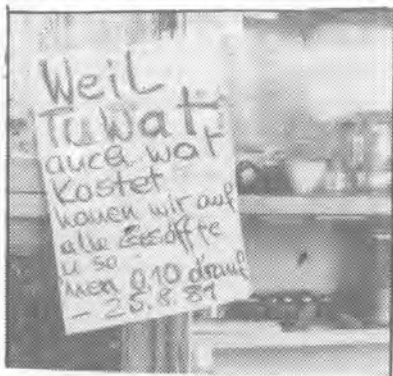 Weil
TuWat
auch wat
kostet
hauen wir auf
alle Gesöffte
u so
Men 0,10 drauf
- 25.8.81